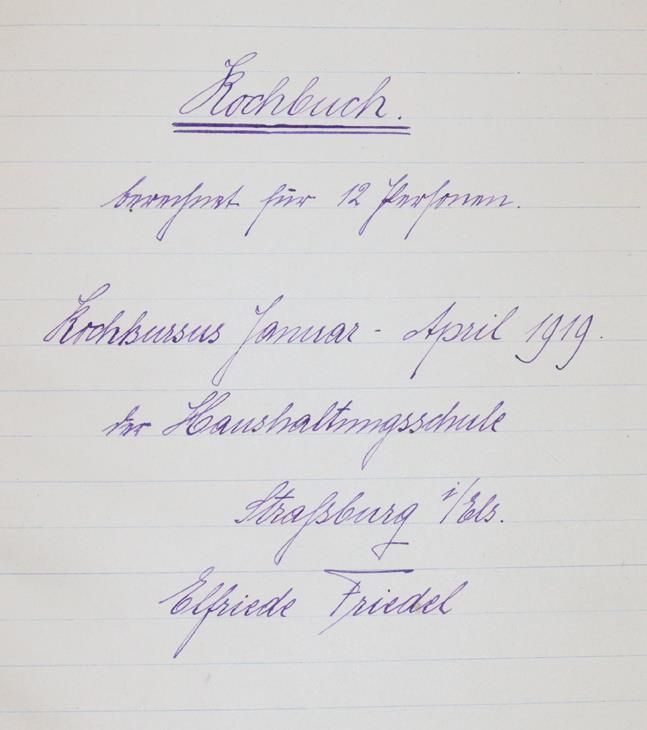 Kochbuch.
berechnet für 12 Personen.
Kochkursus Januar - April 1919.
der Haushaltungsschule
Straßburg i/Els.
Elfriede Friedel